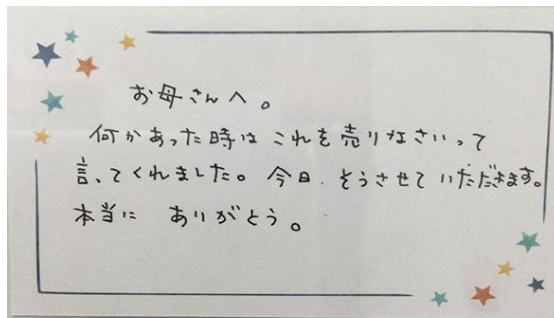 お母さんへ。
何かあった時は これを売りなさいって
言ってくれました。今日、そうさせて いただきます。
本当に ありがとう。